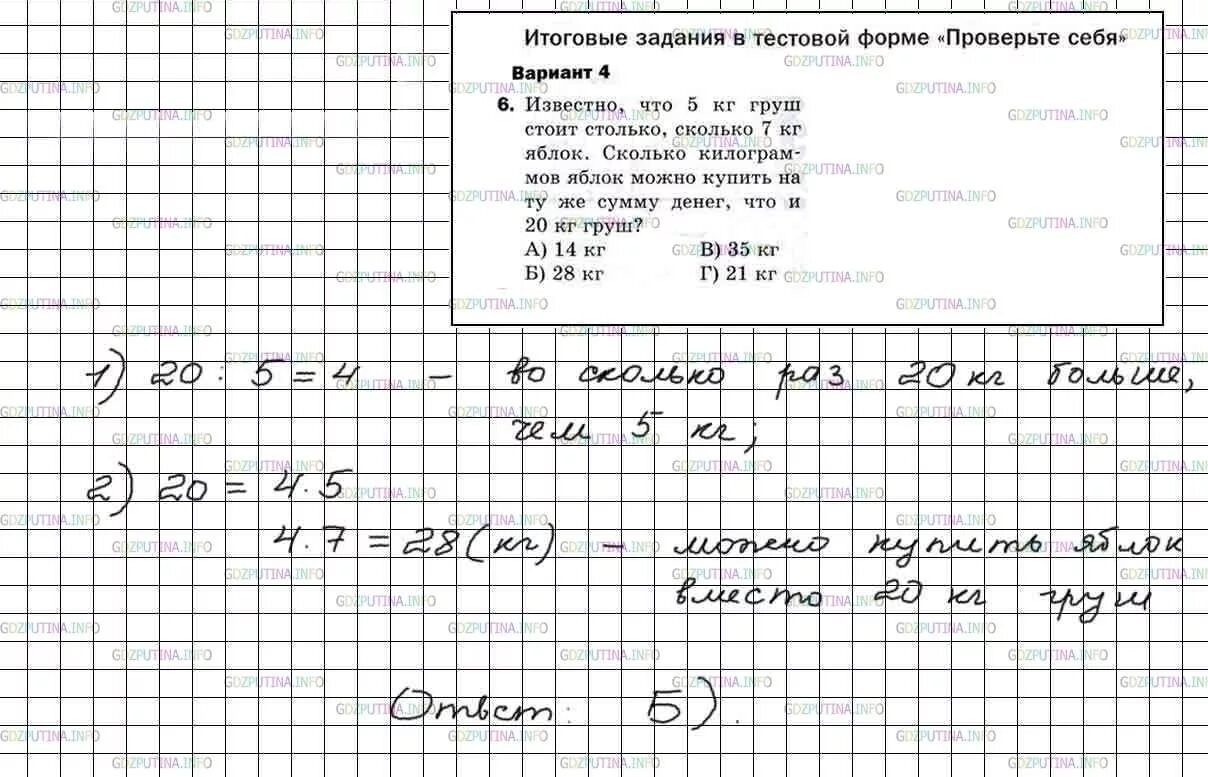 Итоговые задания в тестовой форме «Проверьте себя»
Вариант 4
6. Известно, что 5 кг груш
стоит столько, сколько 7 кг
яблок. Сколько килограм-
мов яблок можно купить на
ту же сумму денег, что и
20 кг груш?
А) 14 кг В) 35 кг
Б) 28 кг Г) 21 кг
1) 20 : 5 = 4 – во сколько раз 20 кг больше,
чем 5 кг;
2) 20 = 4 · 5
4 · 7 = 28 (кг) – можно купить яблок
вместо 20 кг груш
Ответ: Б).
GDZPUTINA.INFO